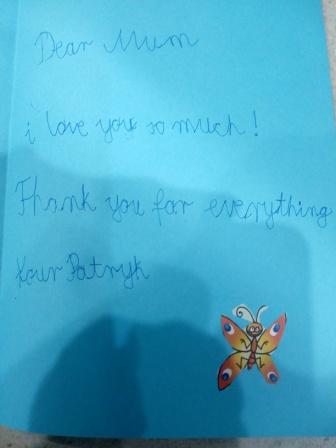 Dear Mum
i love you so much!
Thank you for everything
Your Patryk